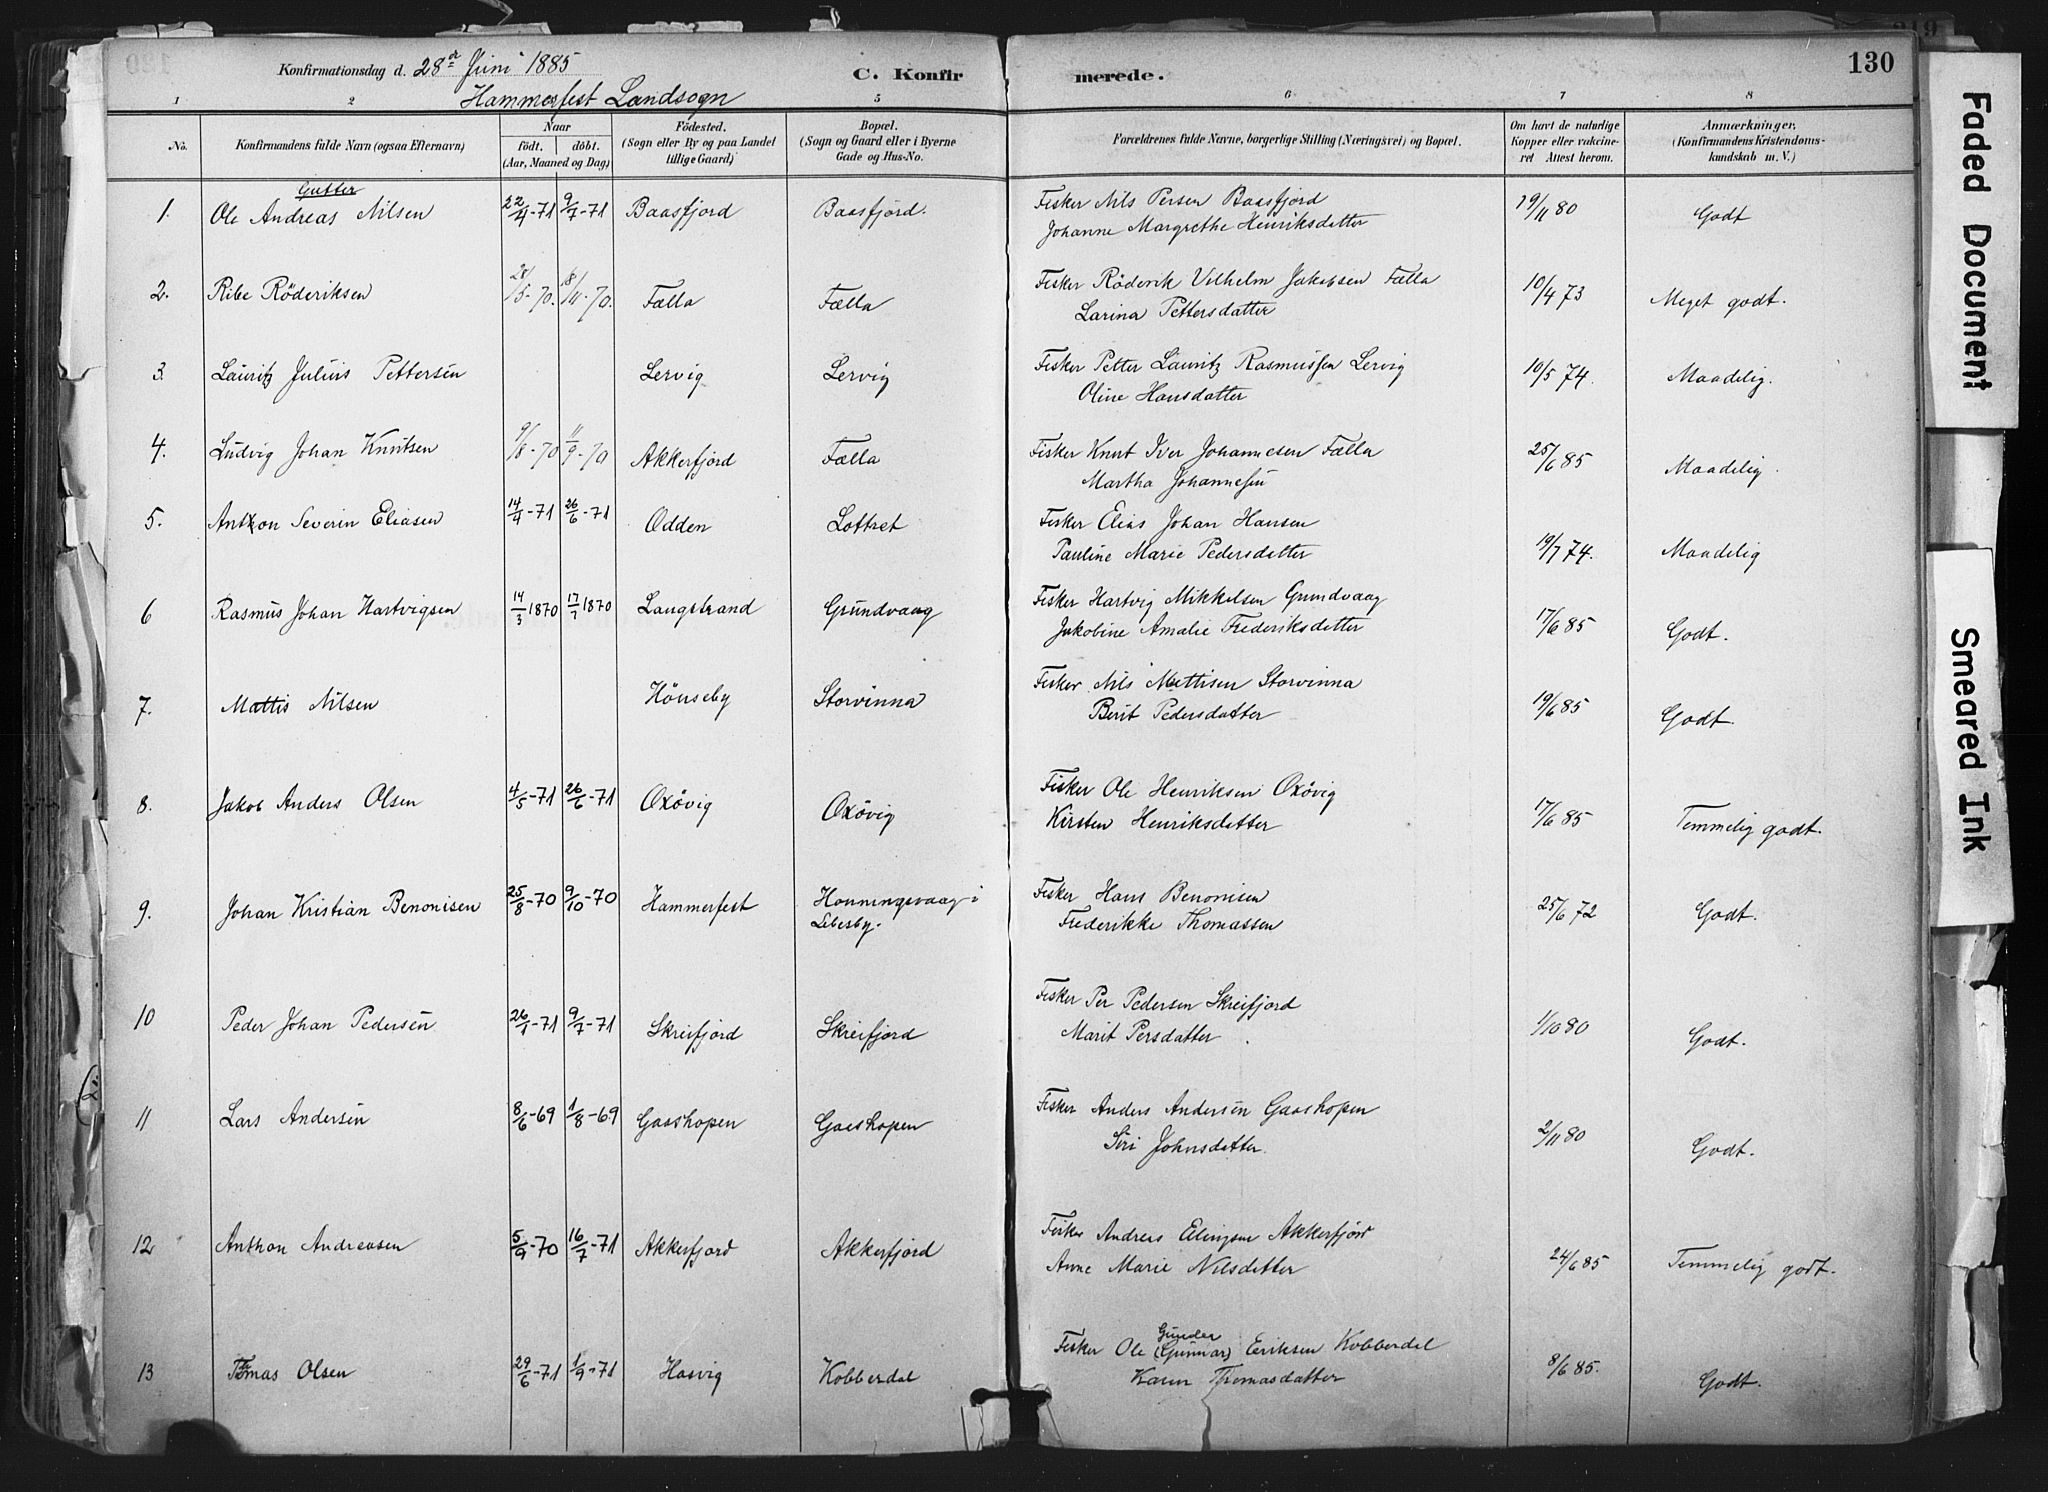 Konfirmationsdag d. 28de Juni 1885
C. Konfirmerede.
130
Hammerfest Landsogn
1 2 5 6 7 8
No.
Konfirmandens fulde Navn (ogsaa Efternavn)
Naar
födt. döbt.
(Aar, Maaned og Dag)
Födested.
(Sogn eller By og paa Landet
tillige Gaard)
Bopæl.
(Sogn og Gaard eller i Byerne
Gade og Hus-No.
Forældrenes fulde Navne, borgerlige Stilling (Næringsvei) og Bopæl.
Om havt de naturlige
Kopper eller vakcine-
ret Attest herom.
Anmærkninger.
(Konfirmandens Kristendoms-
kundskab m. V.)
Gutter
1. Ole Andreas Nilsen 22/4-71 9/7-71 Baasfjord Baasfjord. Fisker Nils Persen Baasfjord 19/11 80 Godt
Johanne Margrethe Henriksdatter
2. Ribe Röderiksen /5-70. 18/11-70. Fælla Fælla Fisker Röderik Vilhelm Jakobsen Fælla 10/4 73 Meget godt.
Larina Pettersdatter
3. Lauritz Julius Pettersen Lervig Lervig Fisker Petter Lauritz Rasmussen Lervig 10/5 74. Maadelig.
Oline Hansdatter
4. Ludvig Johan Knutsen 9/8-70 11/9-70 Akkerfjord Fælla Fisker Knut Iver Johannesen Fælla 25/6 85 Maadelig.
Martha Johannesen
5. Anthon Severin Eliasen 14/4-71 26/6-71 Odden Lottret Fisker Elias Johan Hansen
Pauline Marie Pedersdatter 19/7 74. Maadelig
6 Rasmus Johan Hartvigsen 14/3 1870 17/7 1870 Langstrand Grundvaag Fisker Hartvig Mikkelsen Grundvaag 17/6 85 Godt.
Jakobine Amalie Frederiksdatter
7. Mattis Nilsen Hönseby Storvinna Fisker Nils Mattisen Storvinna 19/6 85 Godt.
Berit Pedersdatter
8. Jakob Anders Olsen 4/5-71 26/6-71 Oxövig Oxövig Fisker Ole Henriksen Oxövig 17/6 85 Temmelig godt.
Kirsten Henriksdatter
9. Johan Kristian Benonisen 25/8-70 9/10-70 Hammerfest Honningsvaag i Fisker Hans Benonisen 25/6 72 Godt.
Lebesby. Frederikke Thomassen
10 Peder Johan Pedersen 26/1-71 9/7-71 Skreifjord Skreifjord Fisker Per Pedersen Skreifjord 1/10 80 Godt.
Marit Persdatter
11 Lars Andersen 8/6-69 1/8-69 Gaashopen Gaashopen Fisker Anders Andersen Gaashopen 2/11 80 Godt.
Siri Johnsdatter.
12 Anthon Andreasen 5/9-70 16/7-71 Akkerfjord Akkerfjord Fisker Andreas Elingsen Akkerfjord 24/6 85 Temmelig godt.
Anne Marie Nilsdatter
Gunder
13 Thomas Olsen 29/6-71 1/9-71 Hasvig Kobberdal Fisker Ole (Gunnar) Eriksen Kobberdal 8/6 85. Godt.
Karen Thomasdatter
Faded Document
Smeared Ink